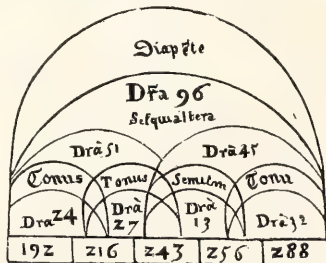 Diapẽte
Dr̃a 96
Sesquialtera
Drã 51 Drã 45
Tonus Tonus Semitm Tonu
Dra z4 Drã z7 Drã 13 Drã 3z
19z z16 z43 z56 z88